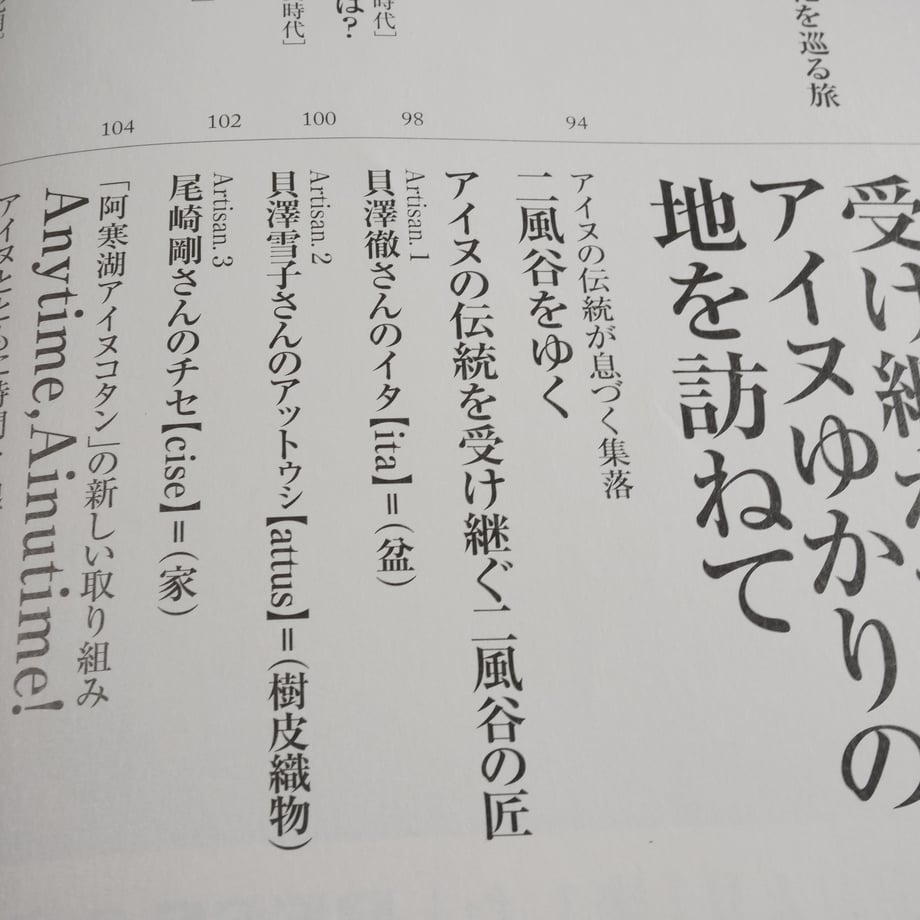 を巡る旅
は？
時代］
時代］
受け継
アイヌゆかりの
地を訪ねて
94
アイヌの伝統が息づく集落
二風谷をゆく
アイヌの伝統を受け継ぐ二風谷の匠
98
Artisan. 1
貝澤徹さんのイタ【ita】＝（盆）
100
Artisan. 2
貝澤雪子さんのアットゥㇱ【attus】＝（樹皮織物）
102
Artisan. 3
尾崎剛さんのチセ【cise】＝（家）
104
「阿寒湖アイヌコタン」の新しい取り組み
Anytime, Ainutime!